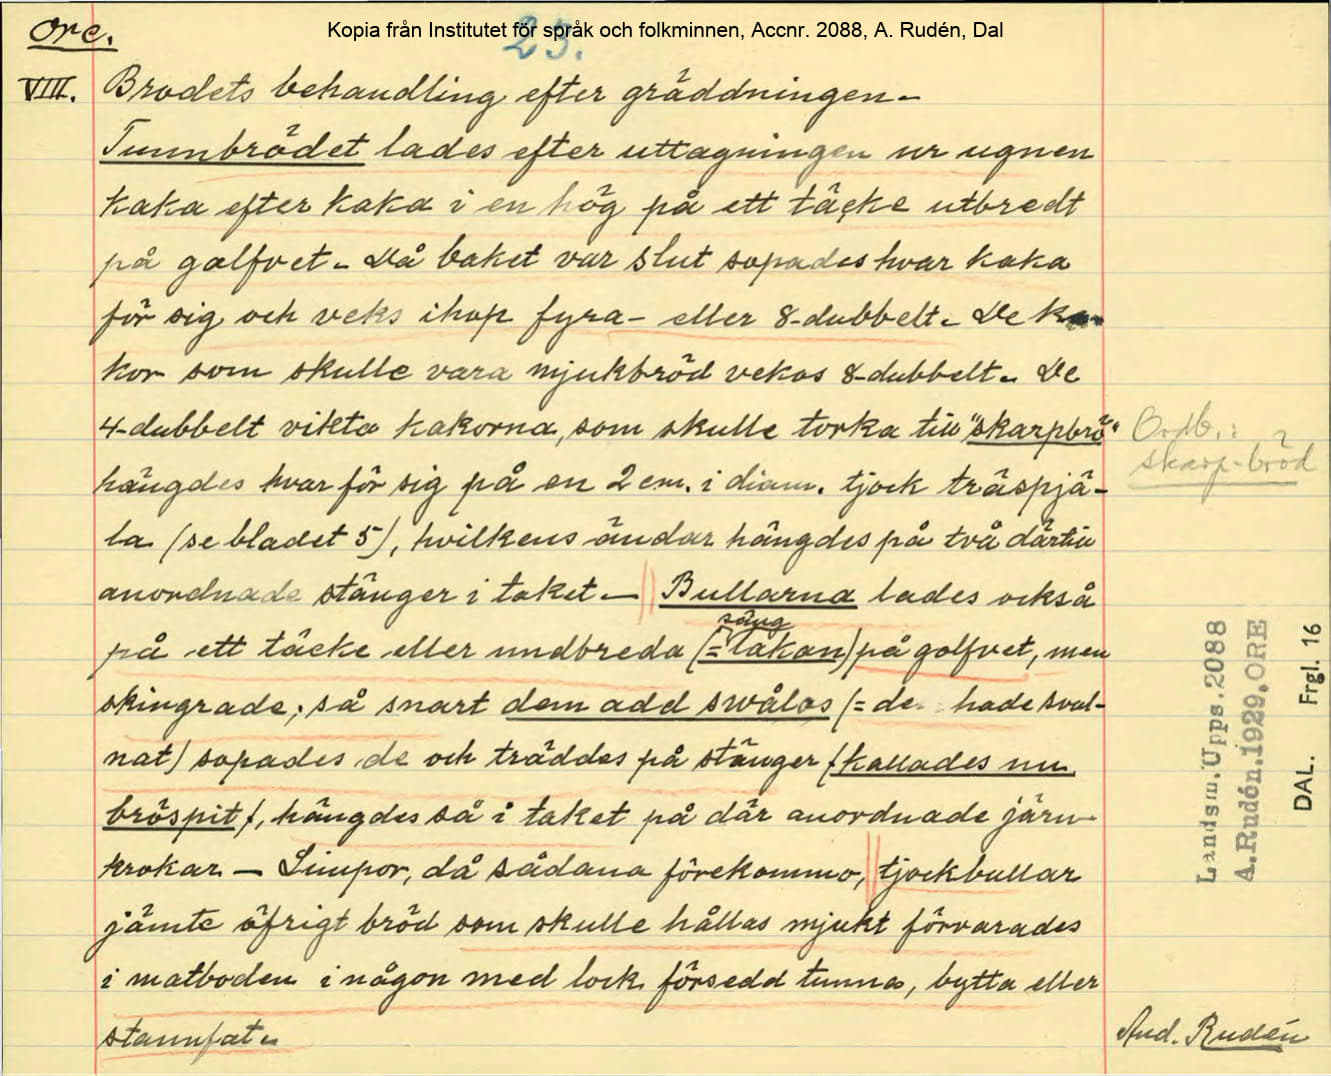 Kopia från Institutet för språk och folkminnen, Accnr. 2088, A. Rudén, Dal
Ore.
23.
VIII. Brödets behandling efter gräddningen.
Tunnbrödet lades efter uttagningen ur ugnen
kaka efter kaka i en hög på ett täcke utbredt
på golfvet. Då baket var slut sopades hvar kaka
för sig och veks ihop fyra- eller 8-dubbelt. De ka-
kor som skulle vara mjukbröd vekos 8-dubbelt. De
4-dubbelt vikta kakorna, som skulle torka till "skarpbrö"
hängdes hvar för sig på en 2 cm. i diam. tjock träspjä-
la (se bladet 5), hvilkens ändar hängdes på två därtill
anordnade stänger i taket. — Bullarna lades också
säng
på ett täcke eller undbreda (= lakan) på golfvet, men
skingrade; så snart dem add swålas (= de hade sval-
nat) sopades de och träddes på stänger (kallades nu
bröspit), hängdes så i taket på där anordnade järn-
krokar. — Limpor, då sådana förekommo, tjockbullar
jämte öfrigt bröd som skulle hållas mjukt förvarades
i matboden i någon med lock försedd tunna, bytta eller
stannfat.
Ordb.:
skarp-bröd
Landsm. Upps. 2088
A. Rudén. 1929. ORE
DAL. Frgl. 16
And. Rudén